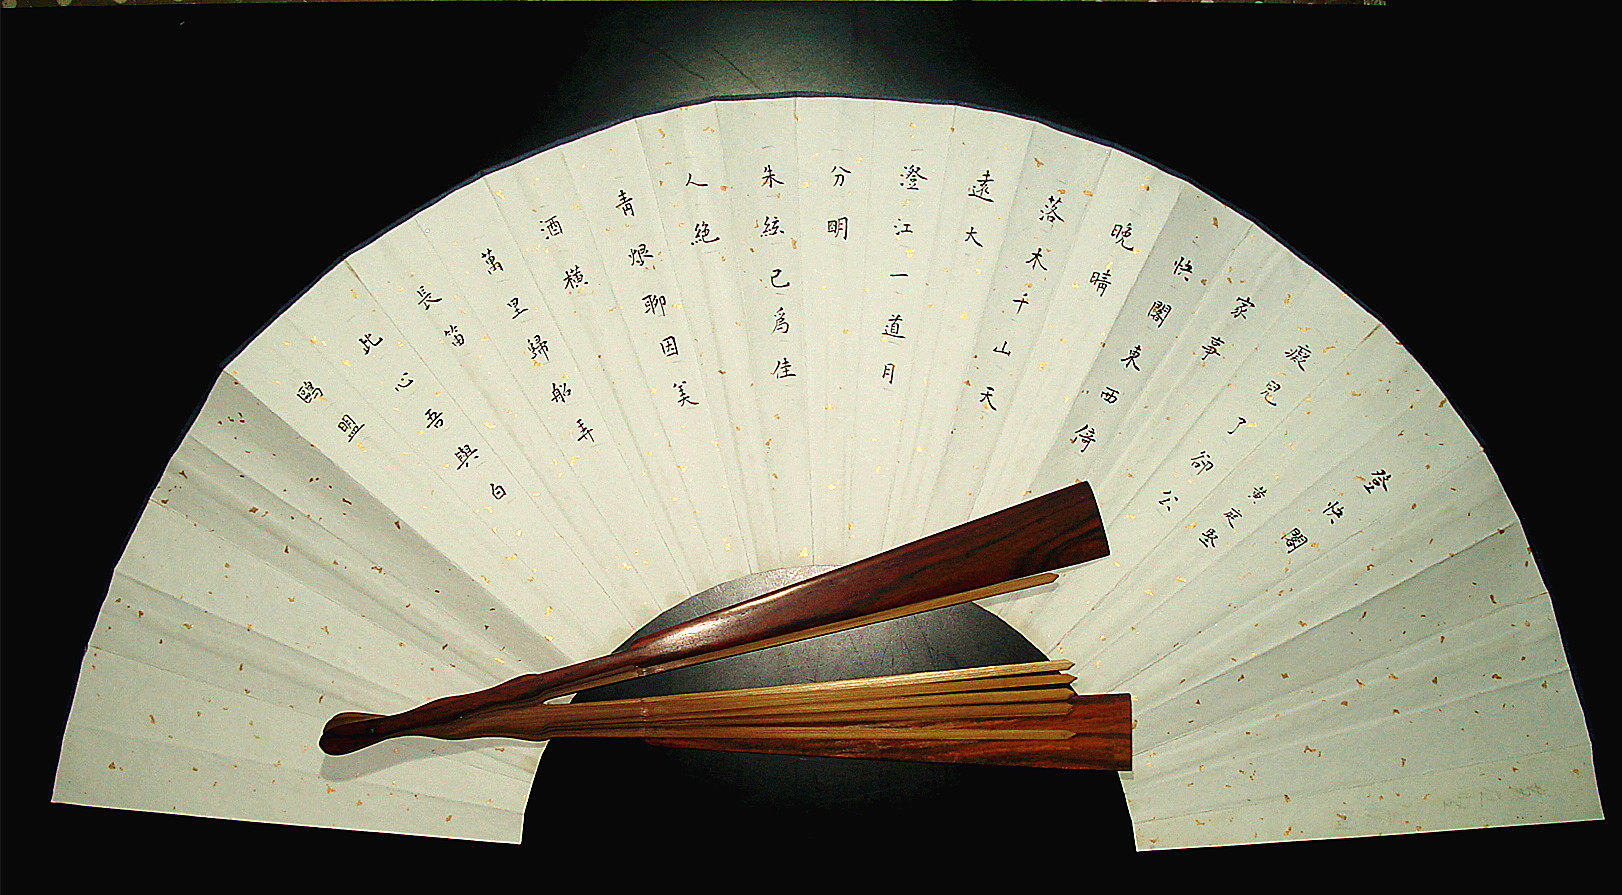 登快閣
黄庭堅
癡兒了卻公
家事
快閣東西倚
晚晴
落木千山天
遠大
澄江一道月
分明
朱絃已爲佳
人絕
青眼聊因美
酒橫
萬里歸船弄
長笛
此心吾與白
鷗盟